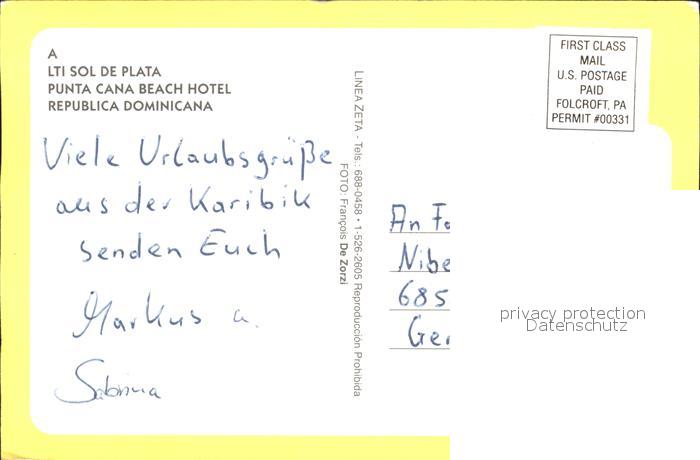 A
LTI SOL DE PLATA
PUNTA CANA BEACH HOTEL
REPUBLICA DOMINICANA
Viele Urlaubsgrüße
aus der Karibik
senden Euch
Markus u.
Sabrina
LINEA ZETA - Tels.: 688-0458 • 1-526-2605 Reproducción Prohibida
FOTO: François De Zorzi
FIRST CLASS
MAIL
U.S. POSTAGE
PAID
FOLCROFT, PA
PERMIT #00331
An Fa
Nibe
685
Ger
privacy protection
Datenschutz